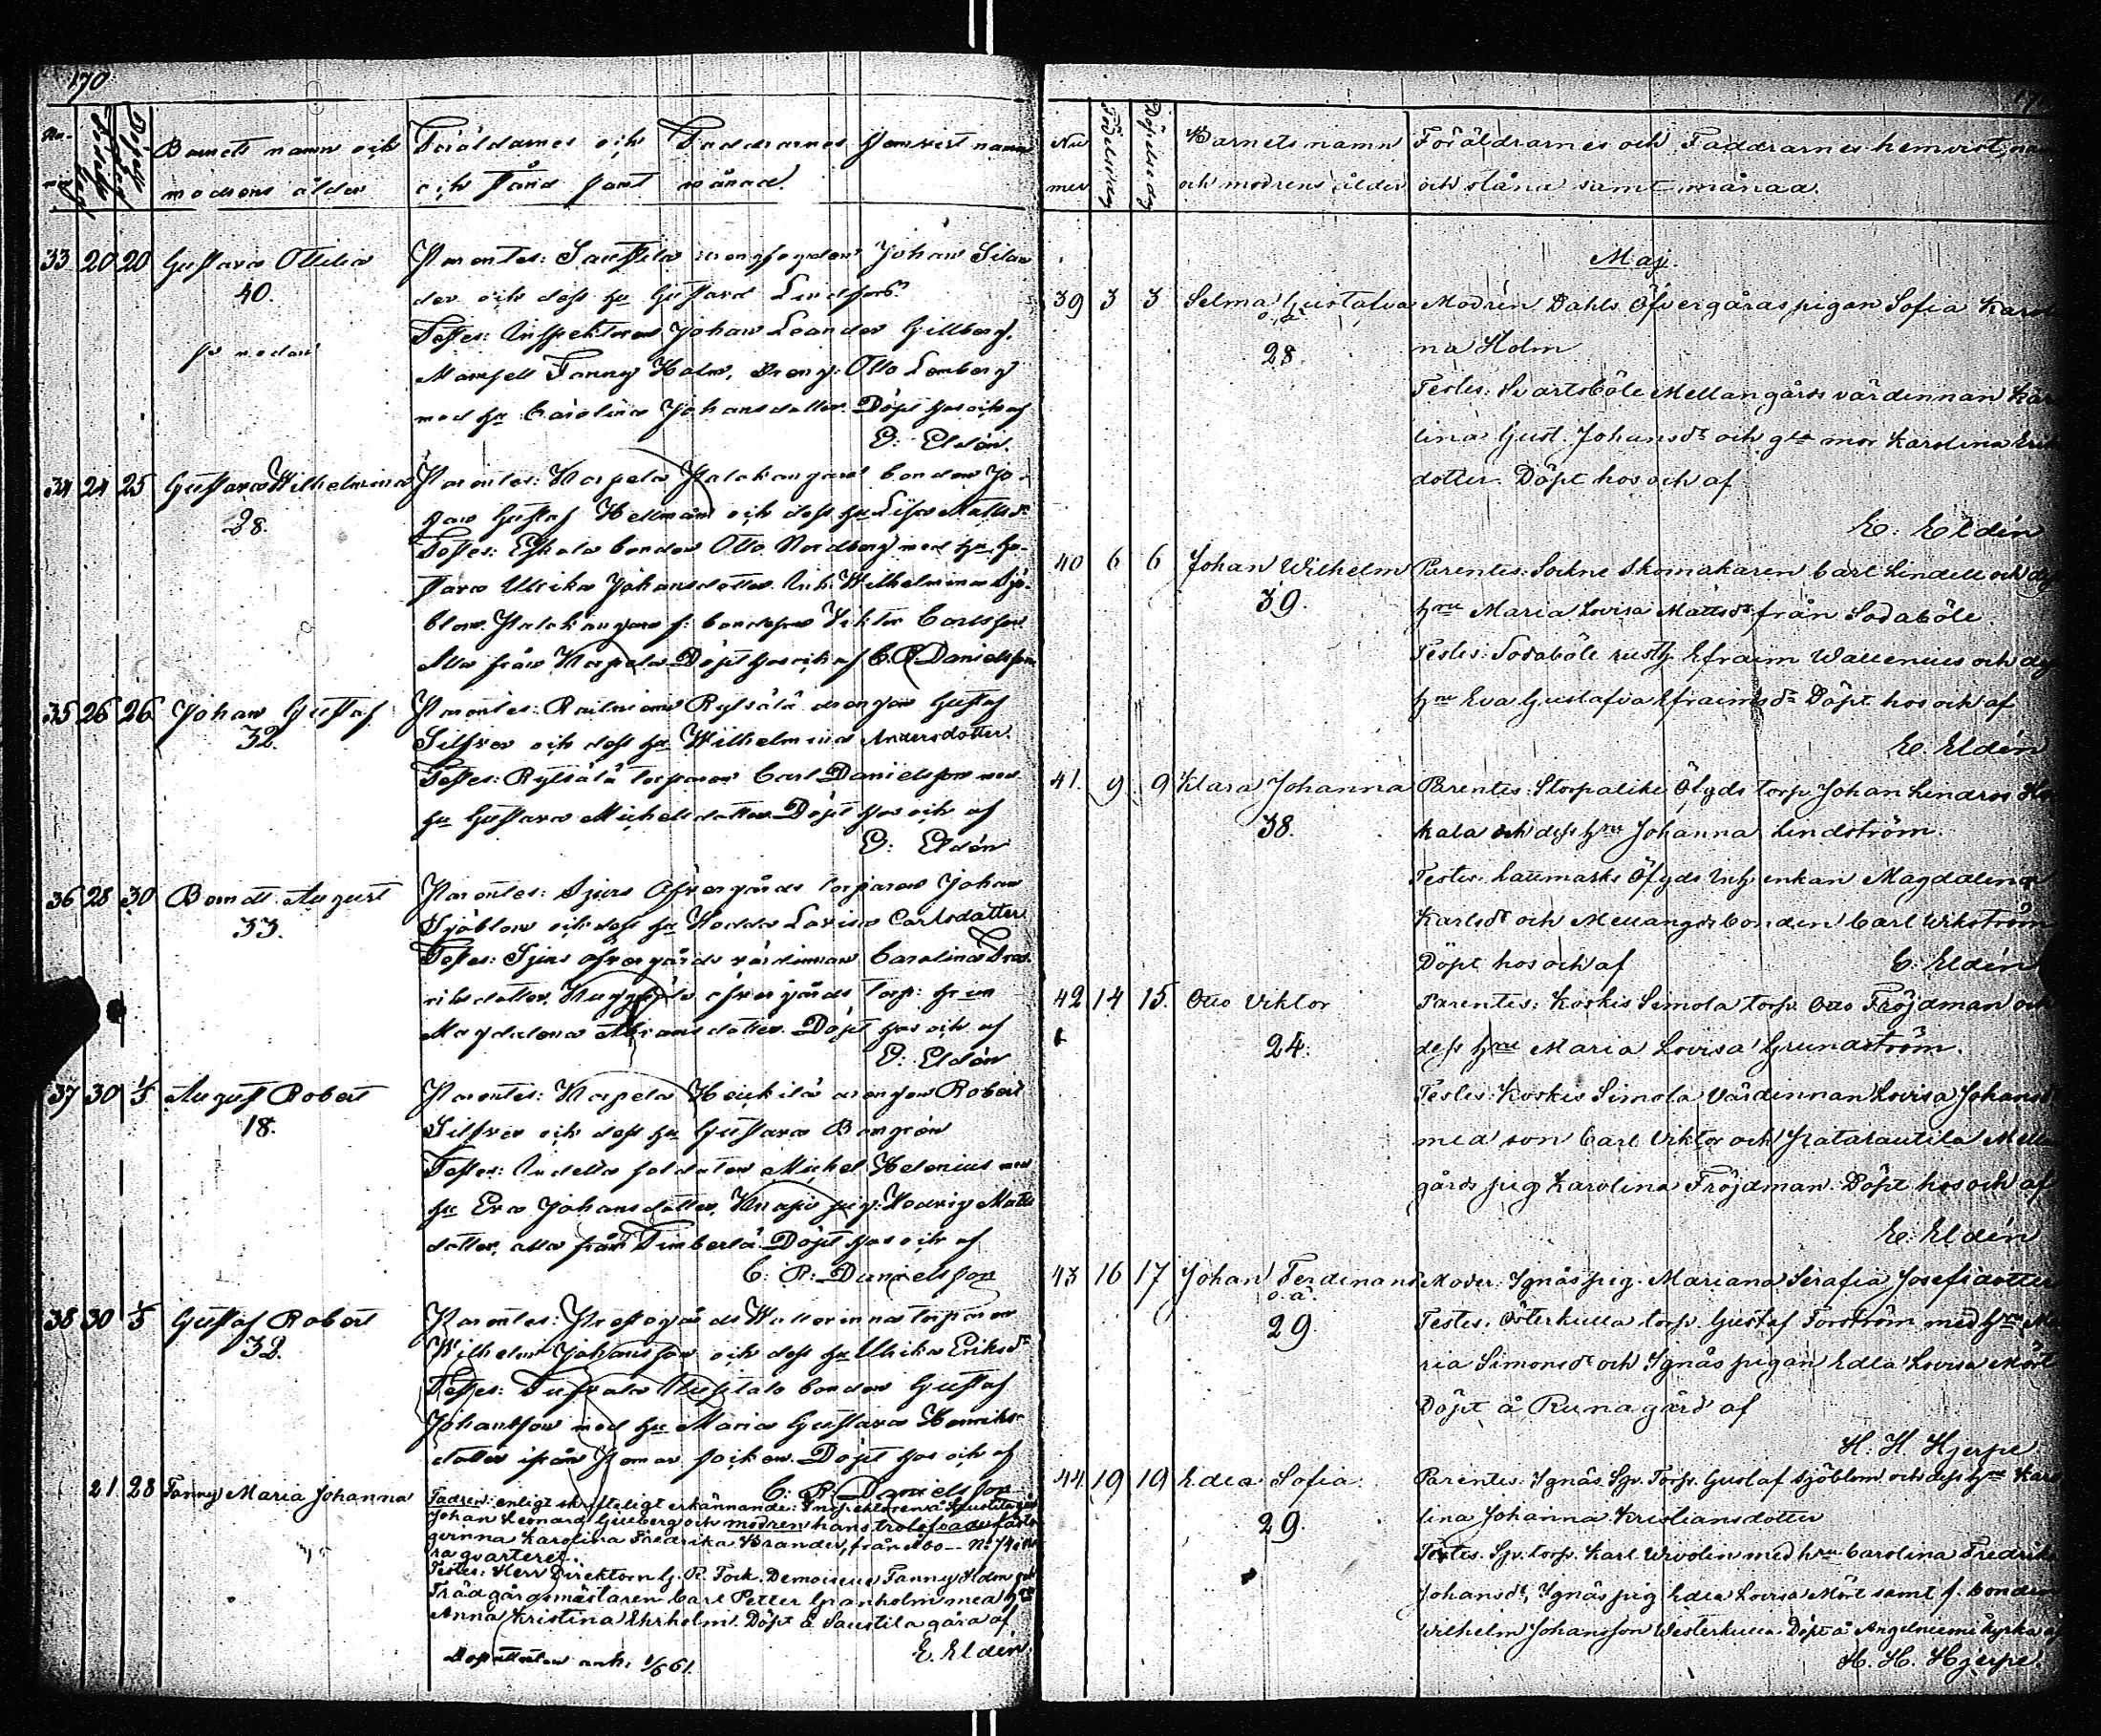 170
Nu-
mer
Födelsedag
Döpelsedag
Barnets namn och
modrens ålder
Föräldarnes och Faddrarnes hemvist namn
och stånd samt månad.
33 20 20 Gustava Ottilia
40.
Parentes: Saustila Johan Silan
der och dess hu Gustava Lindfors
Testes: Inspektoren Johan Leander Gillberg,
Mamsell Fanny Holm, dreng: Otto Lemberg
med hu Carolina Johansdotter. Döpt hos och af
E: Eldén.
34 24 25 Gustava Wilhelmina
28.
Parentes: Karpela bonden Jo-
han Gustaf Hellman och dess hu Lisa Matts dr
Testes: Eskola bonden Otto Nordberg med hu Gu-
stava Ulrika Johansdotter. Inh. Wilhelmina Sjö-
blom. f: bondeson Viktor Carlsson
Alla från Karpela Döpt hos och af C. R. Danielsson
35 26 26 Johan Gustaf
32.
Parentes: Rylsälä drengen Gustaf
Silfver och dess hu Wilhelmina Andersdotter.
Testes: Rylsälä torparen Carl Danielsson med
hu Gustava Michelsdotter Döpt hos och af
E: Eldén
36 28 30 Berndt August
33.
Parentes: Spurs Öfvergårds torparen Johan
Sjöblom och dess hu Hedda Lovisa Carlsdotter
Testes: Spurs öfvergårds värdinnan Carolina Fred-
riksdotter, öfvergårds torp: hu
Magdalena Abramsdotter. Döpt hos och af
E: Eldén
37 30 1/5 August Robert
18.
Parentes: Karpela Heickilä drengen Robert
Silfver och dess hu Gustava Berggrén
Testes: Indelta soldaten Michel Helenius med
hu Eva Johansdotter, Knapi pig: Hedvig Matts
dotter, alla från Timberlä Döpt hos och af
C: R: Danielsson
38 30 1/5 Gustaf Robert
32.
Parentes: Prestegårds torparen
Wilhelm Johansson och dess hu Ulrika Eriks dr
Testes: bonden Gustaf
Johansson med hu Maria Gustava Henriks-
dotter ifrån Pemar socken. Döpt hos och af
C: R: Danielsson
21 28 Fanny Maria Johanna
Fadren: enligt skrifteligt erkännande: Inspektoren å Saustila gård
Johan Leonard Gilleberg och modren hans trolofvade fästeqvinna
Karolina Fredrika Brander, från Åbo No 74 i
ra qvarteret.
Testes: Herr Direktorn G. R. Fock. Demoiselle Fanny Holm
Trädgårdsmästaren Carl Petter Granholm med hru
Anna Kristina Ehrholm. Döpt å Saustila gård af
E. Eldén
anh: 1/6 61.
Nu
mer
Födelsedag
Döpelsedag
Barnets namn
och modrens ålder
Föräldrarnes och Faddrarnes hemvist, nam
och stånd samt månad.
Maj.
39 3 3 Selma Gustafva
o. ä.
28.
Modren Dahls Öfvergårds pigan Sofia Karoli
na Holm
Testes: Svartsböle Mellangårds värdinnan Karo
lina Gust. Johansdr och gla mor Karolina Eriks
dotter. Döpt hos och af
E. Eldén
40 6 6 Johan Wilhelm
39.
Parentes: Sockne Skomakaren Carl Lindell och dess
hru Maria Lovisa Mattsdr från Sodaböle.
Testes: Sodaböle rusth. Efraim Wallenius och dess
hru Eva Gustafva Efraimsdr Döpt hos och af
E. Eldén
41. 9 9 Klara Johanna
38.
Parentes: Storpalike Öfgds torp. Johan Lindros
kala och dess hru Johanna Lindström.
Testes: Lattmarks Öfgds Inh enkan Magdalena
Karlsdr och Mellangds bonden Carl Wikström
Döpt hos och af
E. Eldén
42 14 15. Otto Viktor
24.
Parentes: Koskis Simola torp. Otto Fröjdman och
dess hru Maria Lovisa Grundström.
Testes: Koskis Simola Värdinnan Lovisa Johans
med son Carl Viktor och Mellan
gårds pig Karolina Fröjdman. Döpt hos och af
E. Eldén
43 16 17 Johan Ferdinand
o. ä.
29.
Moder: Ignäs pig. Mariana Serafia Josefsdotter
Testes: Österkulla torp. Gustaf Forström med hru Ma
ria Simonsdr och Ignäs pigan Edla Lovisa Mört
Döpt å Runagård af
H. H. Hjerpe
44. 19 19 Edla Sofia.
29.
Parentes: Ignäs Spr. Torp. Gustaf Sjöblom och dess hru Karo
lina Johanna Kristiansdotter
Testes: Spr. torp. Karl med hru Carolina Fredrika
Johansdr, Ignäs pig Edla Lovisa Mört samt f. bonden
Wilhelm Johansson Westerkulla Döpt å Angelniemi kyrka af
H. H. Hjerpe.